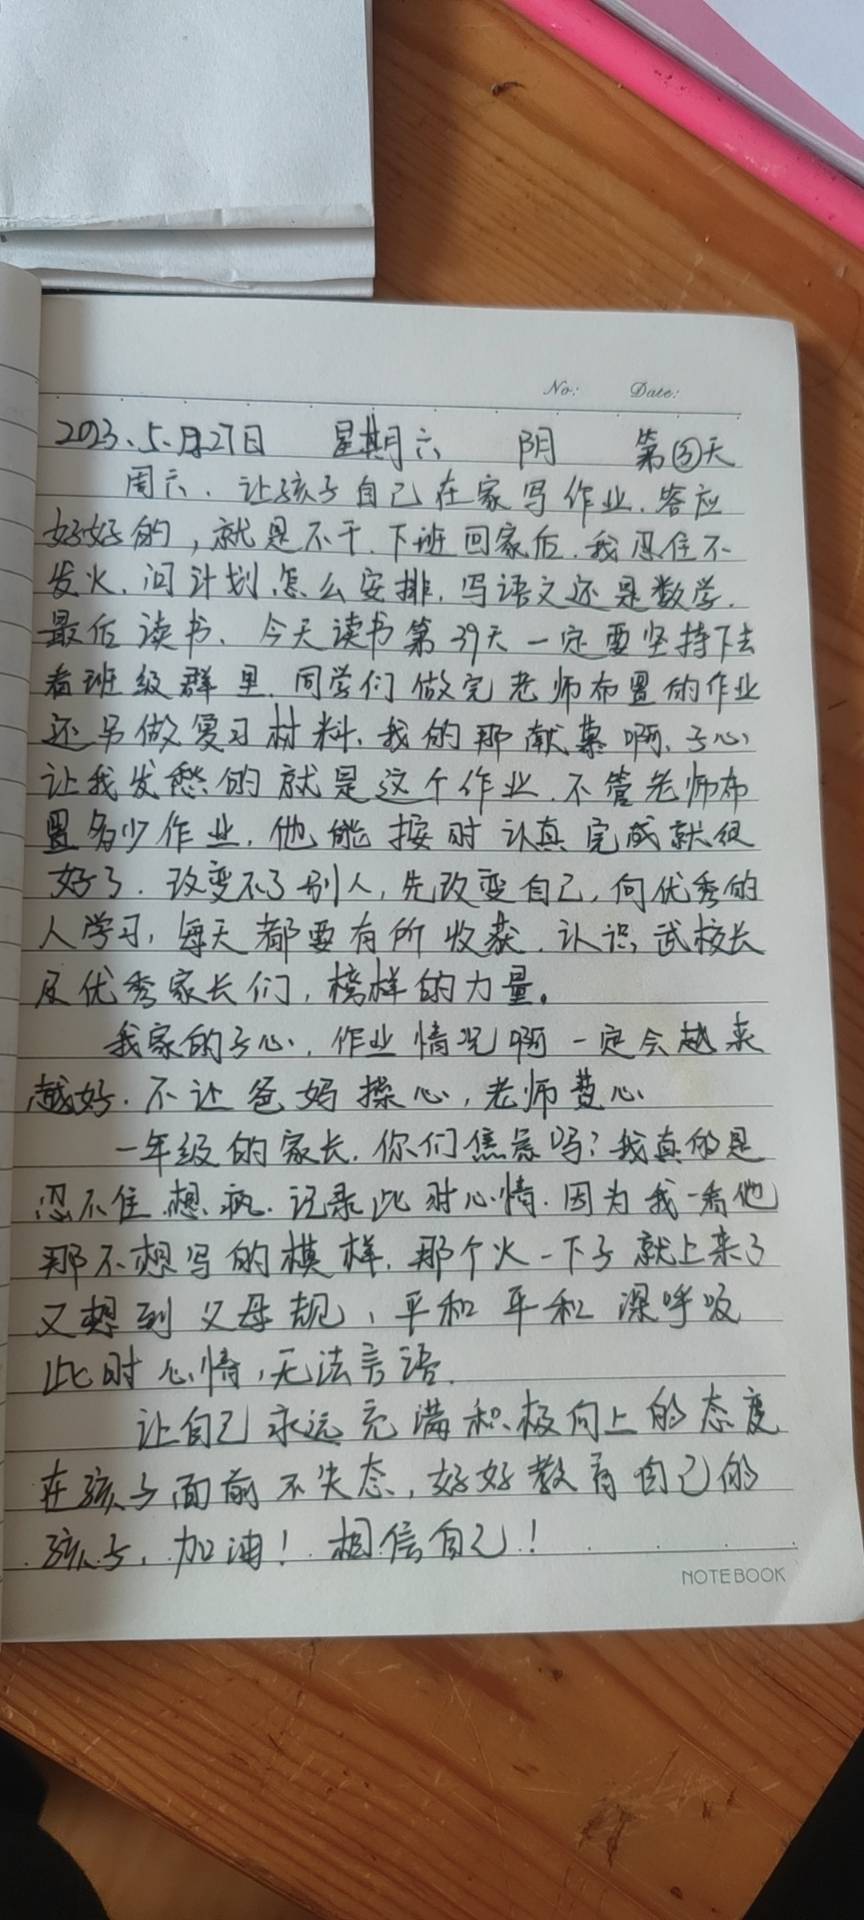 No: Date:
2023.5.月27日 星期六 阴 第③天
周六、让孩子自己在家写作业、答应
好好的，就是不干、下班回家后、我忍住不
发火、问计划、怎么安排、写语文还是数学、
最后读书、今天读书第39天一定要坚持下去
看班级群里、同学们做完老师布置的作业
还另做复习材料、我的那献慕啊、子心
让我发愁的就是这个作业、不管老师布
置多少作业、他能按时认真完成就很
好了、改变不了别人，先改变自己、向优秀的
人学习，每天都要有所收获、认识武校长
及优秀家长们，榜样的力量。
我家的子心、作业情况啊一定会越来
越好、不让爸妈操心，老师费心
一年级的家长、你们焦虑吗？我真的是
忍不住、想疯、记录此时心情、因为我一看他
那不想写的模样、那个火一下子就上来了
又想到父母规，平和平和深呼吸
此时心情，无法言语、
让自己永远充满积极向上的态度
在孩子面前不失态，好好教育自己的
孩子，加油！相信自己！
NOTEBOOK